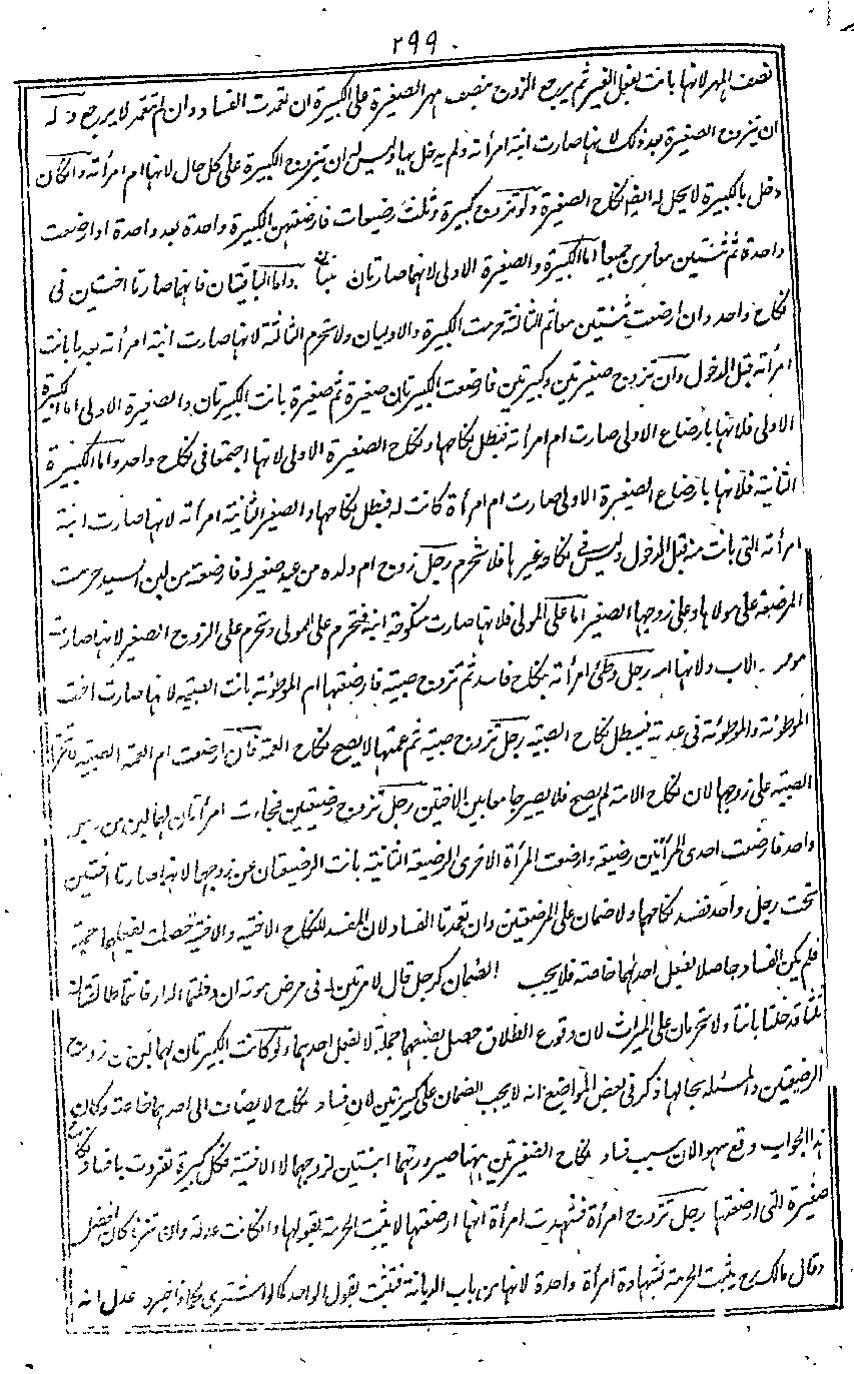 ٢٩٩
نصف المهر لانها بانت بفعل الغير ثم يرجع الزوج بنصف مهر الصغيرة على الكبيرة ان تعمدت الفساد وان لم تتعمد لا يرجع وله
ان يتزوج الصغيرة بعد ذلك لانها صارت ابنة امرأته ولم يدخل بها وليس له ان يتزوج الكبيرة على كل حال لانها ام امرأته وان كان
دخل بالكبيرة لا يحل له ايضا نكاح الصغيرة ولو تزوج كبيرة وثلث رضيعات فارضعتهن الكبيرة واحدة بعد واحدة او ارضعت
واحدة ثم ثنتين معا بن جميعا اما الكبيرة والصغيرة الاولى لانهما صارتا واما الباقيتان فانهما صارتا اختين فى
نكاح واحد وان ارضعت ثنتين معا ثم الثالثة حرمت الكبيرة والاوليان ولا تحرم الثالثة لانها صارت ابنة امرأته بعد ما بانت
امرأته قبل الدخول وان تزوج صغيرتين وكبيرتين فارضعت الكبيرتان صغيرة ثم صغيرة بانت الكبيرتان والصغيرة الاولى اما الكبيرة
الاولى فلانها بارضاع الاولى صارت ام امرأته فبطل نكاحها ونكاح الصغيرة الاولى لانها اجتمعا فى نكاح واحد واما الكبيرة
الثانية فلانها بارضاع الصغيرة الاولى صارت ام امرأة كانت له فبطل نكاحها والصغيرة الثانية امرأته لانها صارت ابنة
امرأته التى بانت منه قبل الدخول وليس فى نكاحه غيرها فلا تحرم رجل زوج ام ولده من عبد صغير له فارضعته من لبن السيد حرمت
المرضعة على مولاها وعلى زوجها الصغير اما على المولى فلانها صارت منكوحة ابنه فتحرم على المولى وتحرم على الزوج الصغير لانها صارت
الاب ولانها امه رجل وطئ امرأته بنكاح فاسد ثم تزوج صبية فارضعتها ام الموطوئة بانت الصبية لانها صارت اخت
الموطوئة والموطوئة فى عدته فيبطل نكاح الصبية رجل تزوج صبية ثم عمتها لا يصح نكاح العمة فان ارضعت ام العمة الصبية لا تحرم
الصبية على زوجها لان نكاح الامة لم يصح فلا يصير جامعا بين الاختين رجل تزوج رضيعتين فجاءت امرأتان لهما لبن من
واحد فارضعت احدى المرأتين رضيعة وارضعت المرأة الاخرى الرضيعة الثانية بانت الرضيعتان عن زوجهما لانهما صارتا اختين
تحت رجل واحد فيفسد نكاحهما ولا ضمان على المرضعتين وان تعمدتا الفساد لان المفسد للنكاح الاختية والاختية حصلت بفعلهما جملة
فلم يكن الفساد حاصلا بفعل احدهما خاصة فلا يجب الضمان كرجل قال لامرتين له فى مرض موته ان دخلتما الدار فانتما طالقتان
ثلثا فدخلتا بانتا ولا تحرمان على الميراث لان وقوع الطلاق حصل بصنعهما جملة لا بفعل احديهما ولو كانت الكبيرتان لهما لبن من زوج
الرضيعتين والمسئلة بحالها ذكر فى بعض المواضع انه لا يجب الضمان على كبيرتين لان فساد نكاح لا يضاف الى احدهما خاصة وكان
هذا الجواب وقع سهوا لان سبب فساد نكاح الصغيرتين ههنا صيرورتهما ابنتين لزوجهما لا الاختية فكل كبيرة تفردت بافساد نكاح
صغيرة التى ارضعتها رجل تزوج امرأة فشهدت امرأة انها ارضعتها لا يثبت الحرمة بقولها وان كانت عدلة وان تنزه كان افضل
وقال مالك رح يثبت الحرمة بشهادة امرأة واحدة لانها من باب الديانة فتثبت بقول الواحد كما لو اشترى لحما فاخبره عدل انه